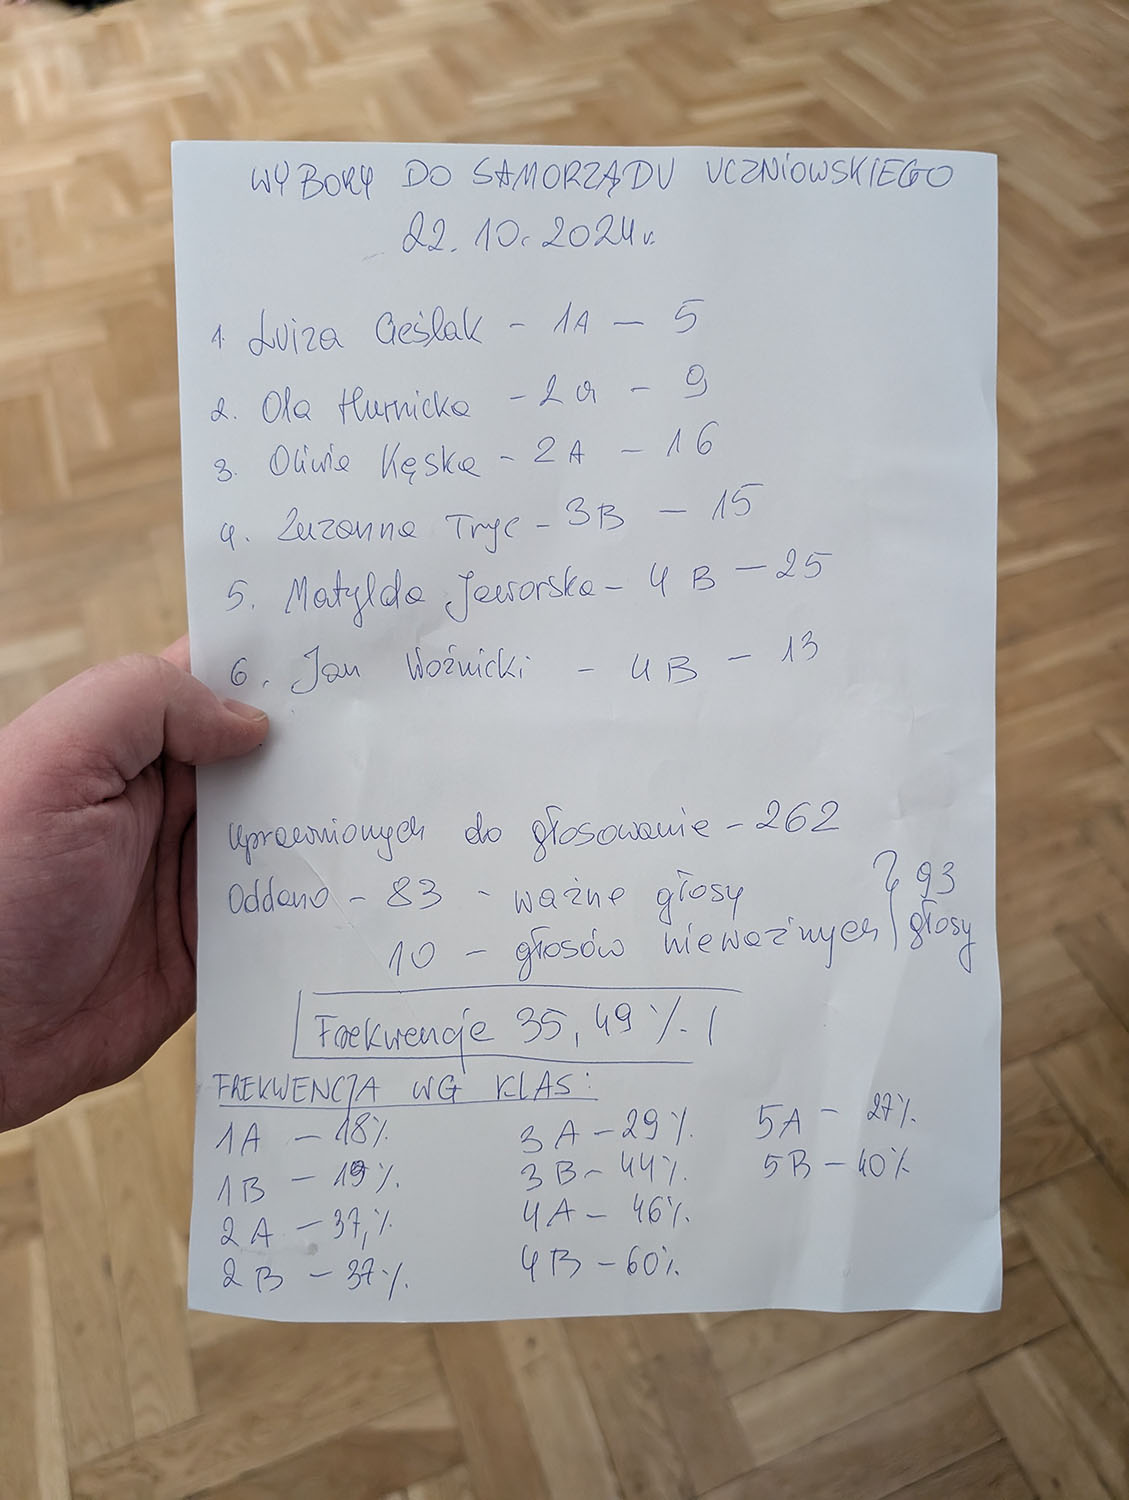 WYBORY DO SAMORZĄDU UCZNIOWSKIEGO
22.10.2024r.
1. Luiza Cieślak - 1A - 5
2. Ola Hurnicka - 2a - 9
3. Oliwia Kęska - 2A - 16
4. Zuzanna Tryc - 3B - 15
5. Matylda Jaworska - 4B - 25
6. Jan Woźnicki - 4B - 13
Uprawnionych do głosowania - 262
Oddano - 83 - ważne głosy } 93
10 - głosów nieważnych } głosy
Frekwencja 35,49%
FREKWENCJA WG KLAS:
1A - 18% 3A - 29% 5A - 27%
1B - 19% 3B - 44% 5B - 40%
2A - 37,% 4A - 46%
2B - 37% 4B - 60%